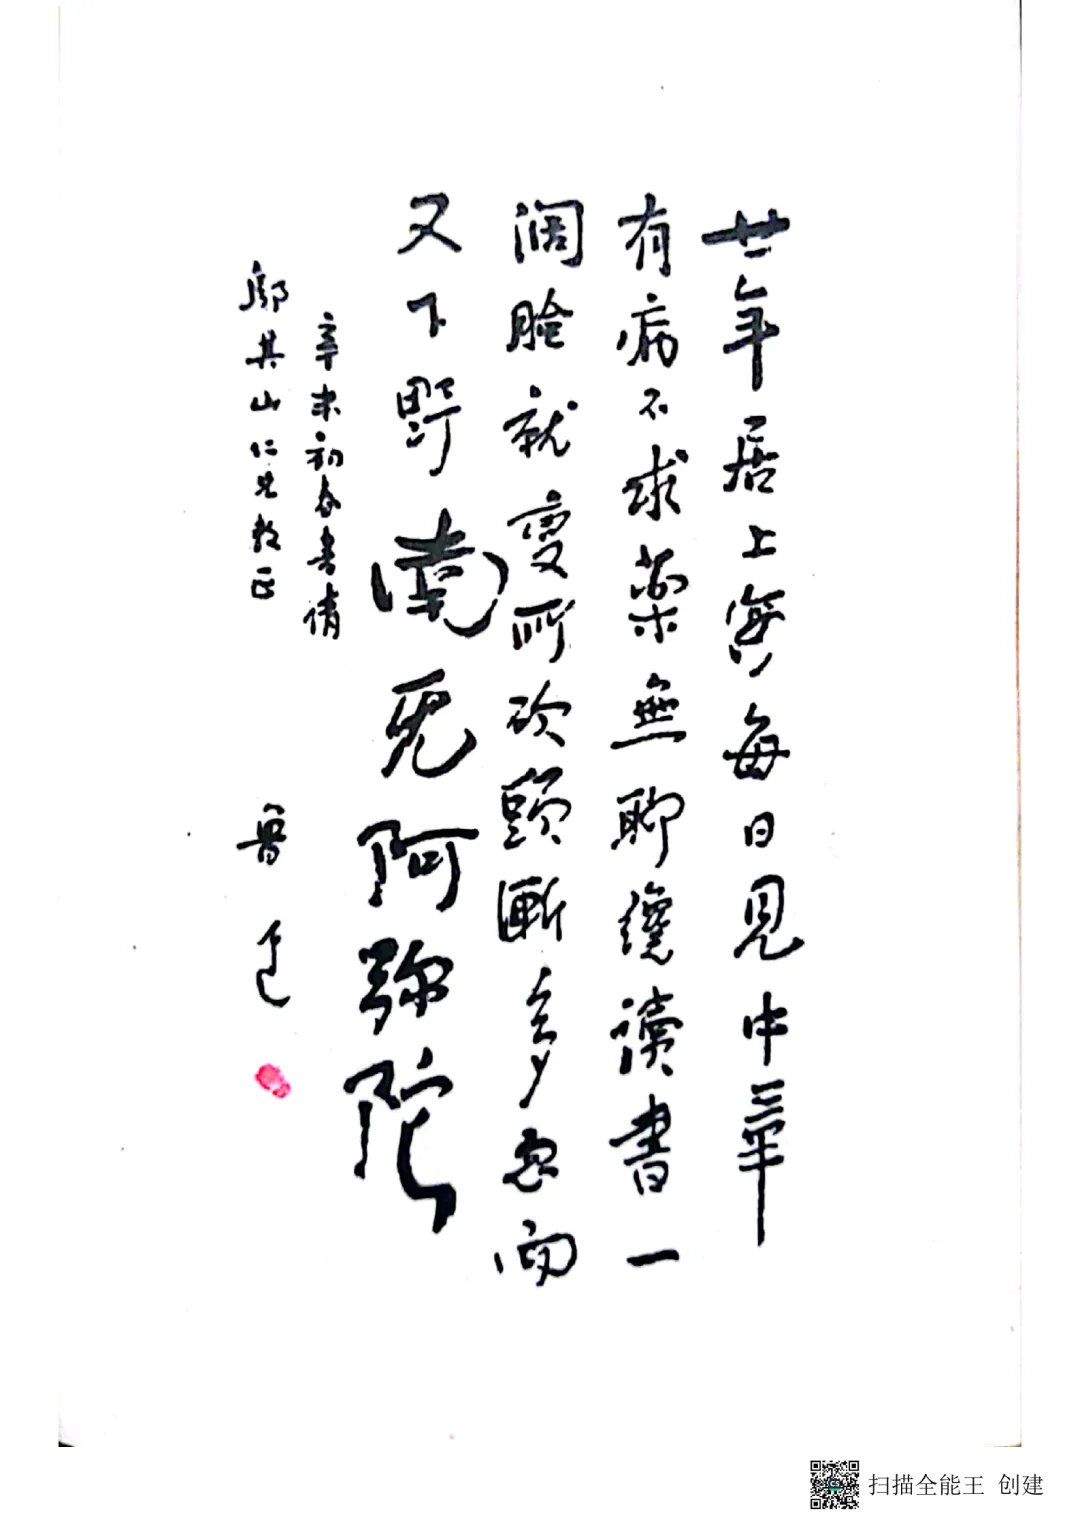 廿年居上海每日見中華
有病不求藥無聊纔讀書一
阔臉就變所砍頭漸多忽而
又下野南无阿彌陀
辛未初春書請
鄔其山仁兄教正
魯迅
扫描全能王 创建